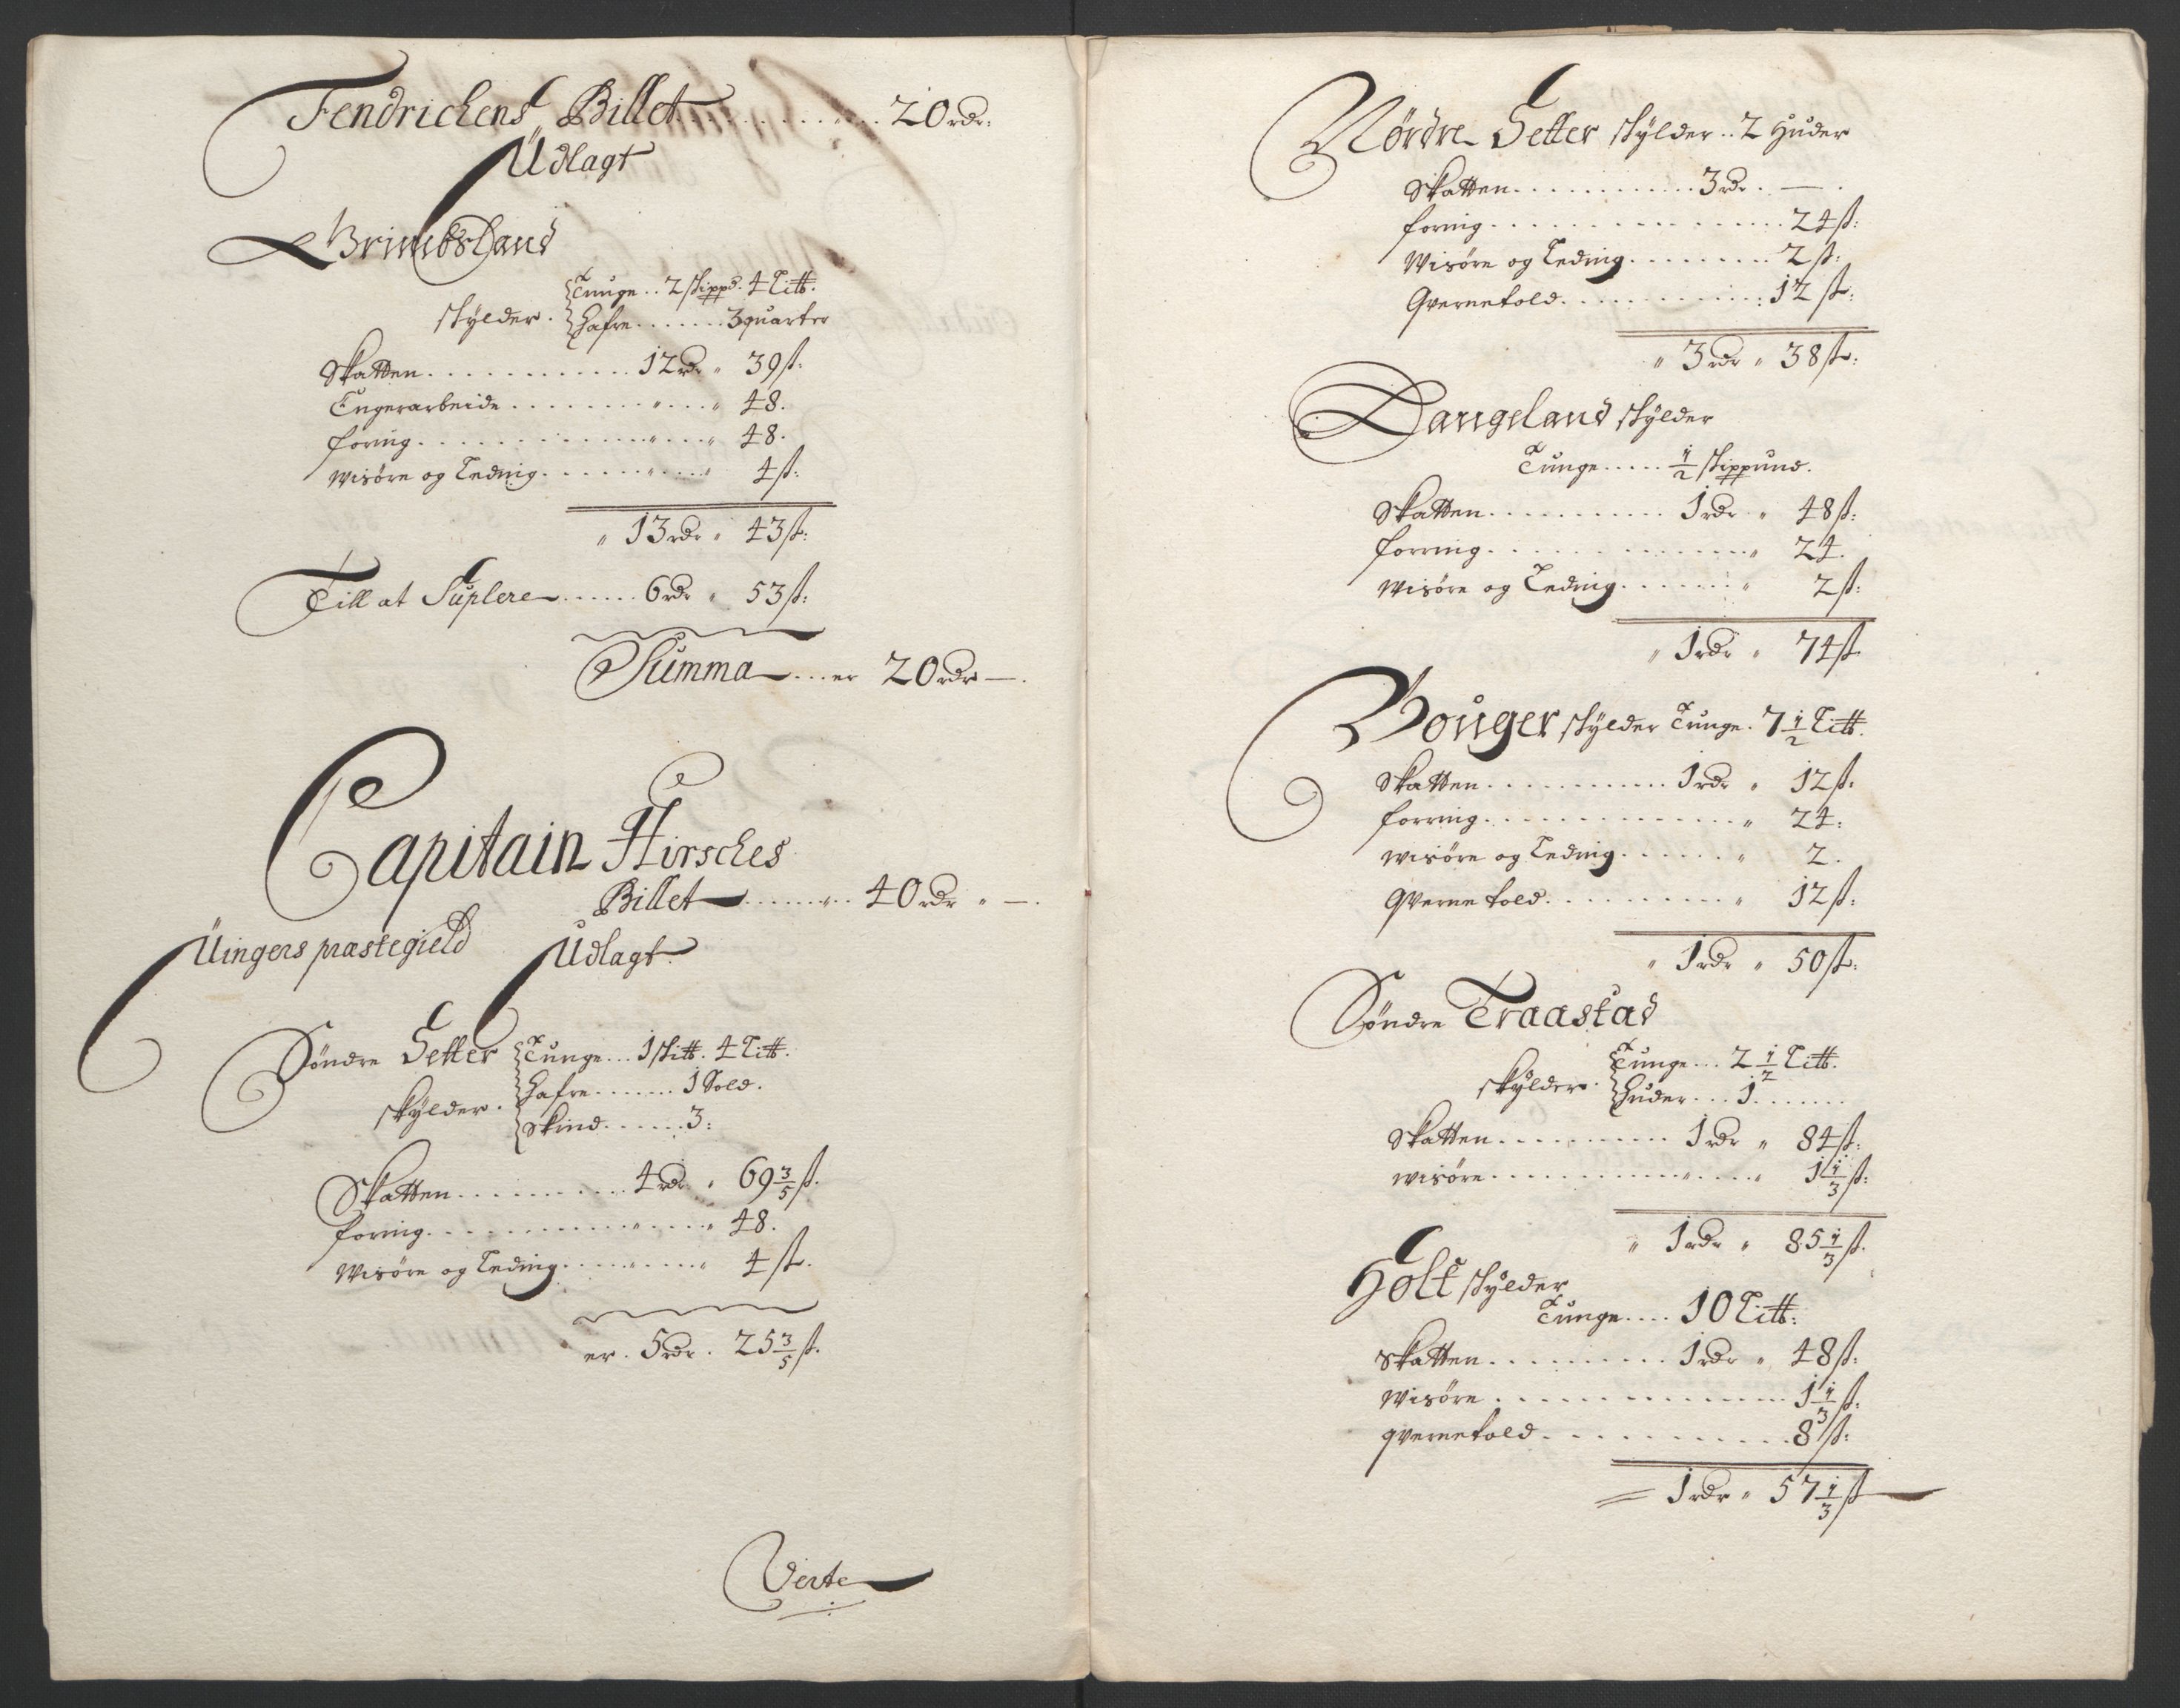 Fendrichens Billet . . . . . . . . . . 20 rdr:
Udlagt
Brimbsland
Tunge .. 2 skippd. 4 Litt.
skylder . Hafre . . . . . . . 3 quarter
Skatten . . . . . . . . . . . . 12 rdr „ 39 ß:
Engerarbeide . . . . . . . „ . . . „ 48.
foring . . . . . . . . . . . . . „ . . . „ 48.
Wisøre og Leding . . . . . „ . . . „ 4 ß:
„ 13 rdr „ 43 ß:
Till at Suplere . . . . . . 6 rdr „ 53 ß:
Summa . . . er 20 rdr — .
Capitain Hirsches
Billet . . . . . . . . 40 rdr „ — .
Uingers præstegield Udlagt
Søndre Setter Tunge . . . 1 skitt. 4 Litt.
skylder . Hafre . . . . . . . 1 Sold.
Skind . . . . . . 3:
Skatten . . . . . . . . . . 4 rdr „ 69 3/5 ß.
foring . . . . . . . . . . . . „ . . . . „ 48.
Wisøre og Leding . . . . „ . . . . „ 4 ß.
er . 5 rdr . 25 3/5 ß.
Verte
Nørdre Setter skylder .. 2 Huder
Skatten . . . . . . . . . . . 3 rdr . — .
foring . . . . . . . . . . . . . . . . 24 ß:
Wisøre og Leding . . . . . . . . . 2 ß:
Qvernetold . . . . . . . . . . . . : 12 ß:
„ 3 rdr „ 38 ß:
Dangeland skylder
Tunge . . . . . 1/2 skippund.
Skatten . . . . . . . . . . . 1 rdr „ 48 ß:
forring . . . . . . . . . . . . . . . . „ 24.
Wisøre og Leding . . . . . . . „ 2 ß:
„ 1 rdr „ 74 ß
Wouger skylder Tunge . 7 1/2 Litt.
Skatten . . . . . . . . . . . 1 rdr „ 12 ß:
forring . . . . . . . . . . . . . . . „ 24:
wisøre og Leding . . . . . . „ 2.
Qvernetold . . . . . . . . . . . „ 12 ß:
„ 1 rdr „ 50 ß:
Søndre Traastad
Tunge . . . 2 1/2 Litt.
skylder . Huder . . . 1 . . . . . . .
Skatten . . . . . . . . . . . 1 rdr „ 84 ß:
wisøre . . . . . . . . . . . . „ . . . . „ 1 1/3 ß:
„ 1 rdr „ 85 1/3 ß.
Holt skylder
Tunge . . . . 10 Litt:
Skatten . . . . . . . . . . 1 rdr „ 48 ß:
Wisøre . . . . . . . . . . . . . . . . 1 1/3 ß:
qvernetold . . . . . . . . . . . . 8 ß:
1 rdr „ 57 1/3 ß